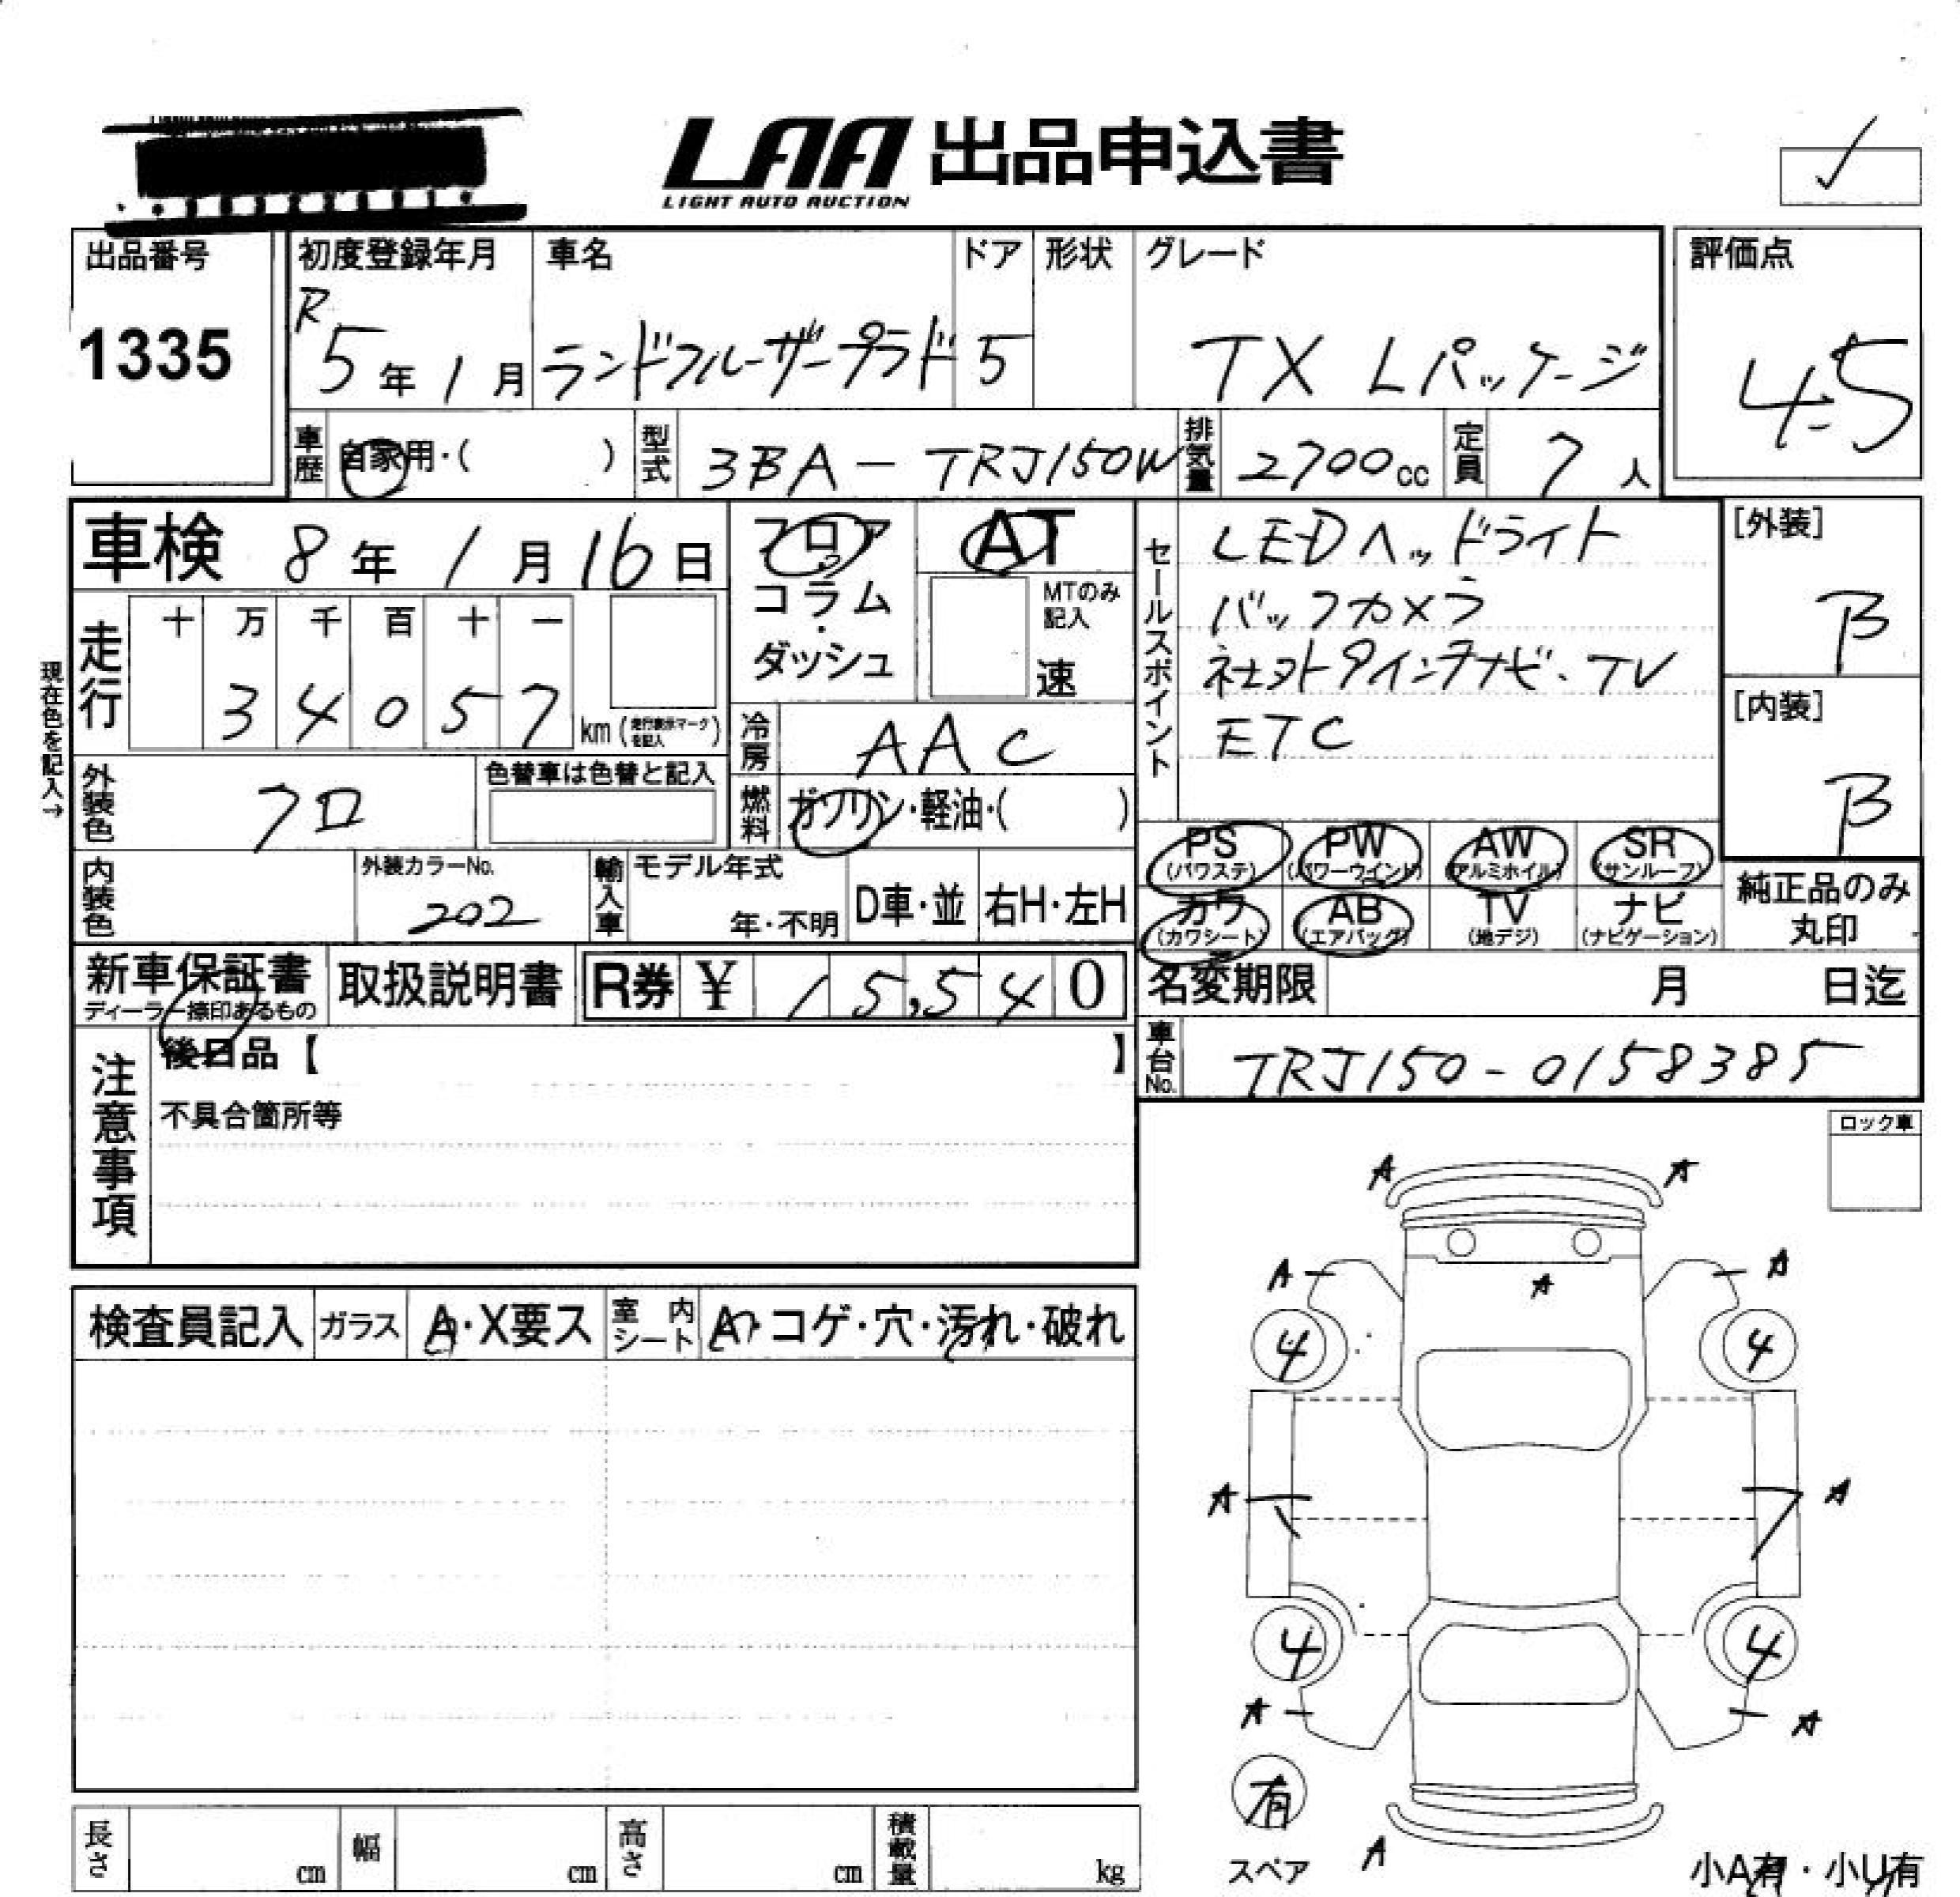 LAA 出品申込書
LIGHT AUTO AUCTION
出品番号
1335
初度登録年月
R5年1月
車名
ランドクルーザープラド
ドア
5
形状
グレード
TX Lパッケージ
評価点
4.5
車歴
自家用・( )
型式
3BA-TRJ150W
排気量
2700cc
定員
7人
車検 8年1月16日
フロア
コラム
・
ダッシュ
AT
MTのみ記入
速
現在色を記入→
走行
十 万 千 百 十 一
3 4 0 5 7
km(走行表示マークを記入)
冷房
AAC
燃料
ガソリン・軽油・( )
外装色
クロ
色替車は色替と記入
内装色
外装カラーNo.
202
輸入車
モデル年式
年・不明
D車・並
右H・左H
セールスポイント
LEDヘッドライト
バックカメラ
社外9インチナビ・TV
ETC
[外装]
B
[内装]
B
PS PW AW SR
(パワステ) (パワーウインド) (アルミホイル) (サンルーフ)
カワ AB TV ナビ
(カワシート) (エアバッグ) (地デジ) (ナビゲーション)
純正品のみ
丸印
新車保証書
ディーラー捺印あるもの
取扱説明書
R券 ¥ 15,540
名変期限 月 日迄
車台No.
TRJ150-0158385
注意事項
後日品【 】
不具合箇所等
ロック車
検査員記入
ガラス
A・X要ス
室内シート
A・コゲ・穴・汚れ・破れ
A A
A A
A
4 4
A A
4 4
A A
有
スペア
A
小A有・小U有
長さ cm
幅 cm
高さ cm
積載量 kg